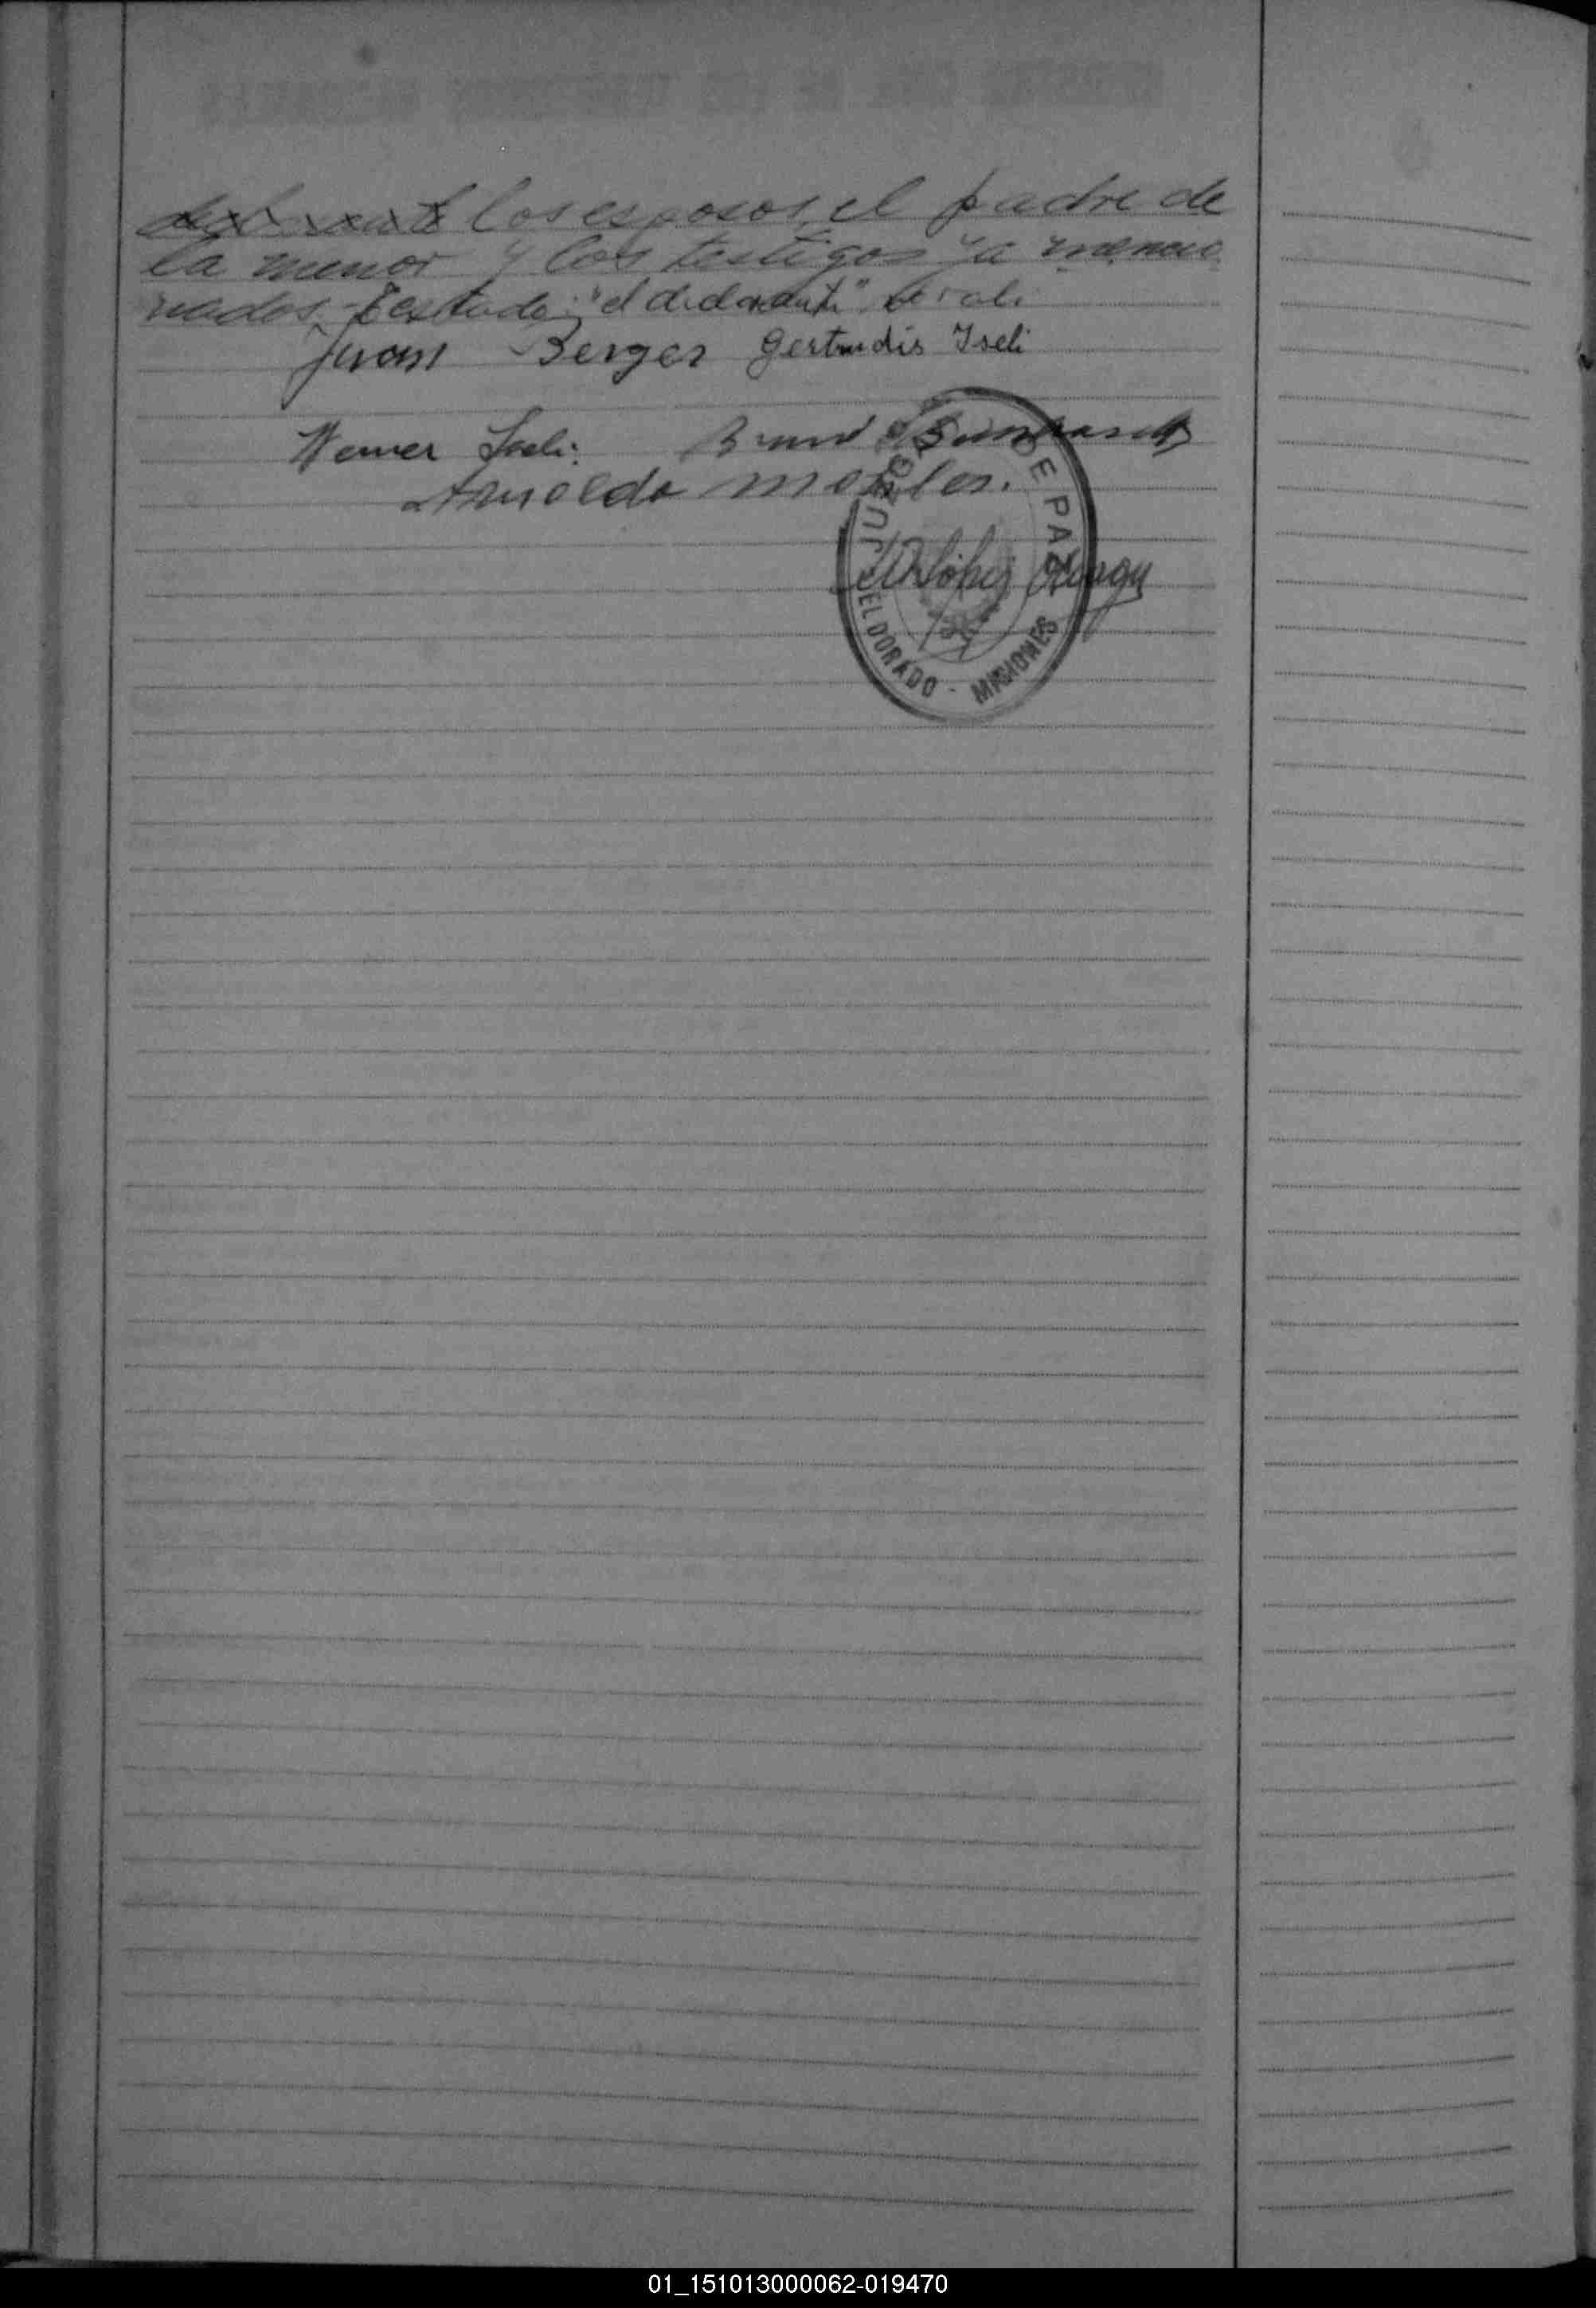 declarante los esposos, el padre de
la menor y los testigos ya mencio
nados. Testado: "el declarante" no vale
Juan Berger Gertrudis Iseli
Werner Iseli Bruno
Arnoldo
JUZGADO DE PAZ
López
ELDORADO - MISIONES
01_151013000062-019470